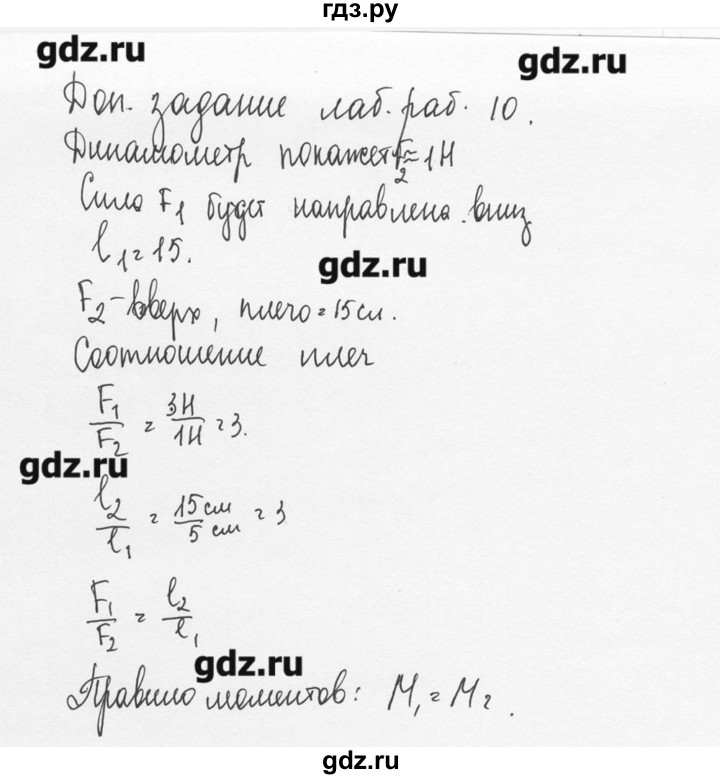 гдз.ру
gdz.ru
gdz.ru
Доп. задание лаб. раб. 10.
Динамометр покажет F₂≈1Н
Сила F₁ будет направлена вниз
l₁=15.
gdz.ru
F₂-вверх, плечо=15см.
Соотношение плеч
F₁/F₂ = 3Н/1Н = 3.
gdz.ru
l₂/l₁ = 15см/5см = 3
F₁/F₂ = l₂/l₁
gdz.ru
Правило моментов: M₁=M₂.
gdz.ru